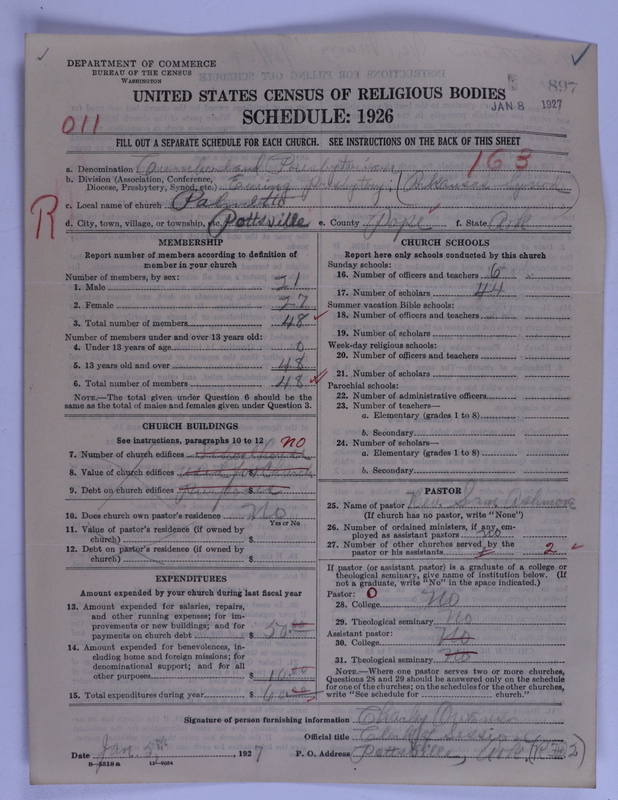 DEPARTMENT OF COMMERCE
BUREAU OF THE CENSUS
WASHINGTON
897
JAN 8 1927
UNITED STATES CENSUS OF RELIGIOUS BODIES
SCHEDULE: 1926
011
FILL OUT A SEPARATE SCHEDULE FOR EACH CHURCH. SEE INSTRUCTIONS ON THE BACK OF THIS SHEET
163
a. Denomination Cumberland Presbyterian
b. Division (Association, Conference, Diocese, Presbytery, Synod, etc.) Ewing Presbytery, (Arkansas Synod)
R
c. Local name of church Palmetto
d. City, town, village, or township, etc. Pottsville e. County Pope f. State Ark
MEMBERSHIP
Report number of members according to definition of
member in your church
Number of members, by sex:
1. Male 21
2. Female 27
3. Total number of members 48
Number of members under and over 13 years old:
4. Under 13 years of age 0
5. 13 years old and over 48
6. Total number of members 48
NOTE.—The total given under Question 6 should be the
same as the total of males and females given under Question 3.
CHURCH BUILDINGS
See instructions, paragraphs 10 to 12 no
7. Number of church edifices Schoolhouse
8. Value of church edifices used for Church
9. Debt on church edifices $ purposes
10. Does church own pastor's residence No
Yes or No
11. Value of pastor's residence (if owned by
church) $
12. Debt on pastor's residence (if owned by
church) $
EXPENDITURES
Amount expended by your church during last fiscal year
13. Amount expended for salaries, repairs,
and other running expenses; for im-
provements or new buildings; and for
payments on church debt $ 50.00
14. Amount expended for benevolences, in-
cluding home and foreign missions; for
denominational support; and for all
other purposes $ 10.00
15. Total expenditures during year $ 60.00
CHURCH SCHOOLS
Report here only schools conducted by this church
Sunday schools:
16. Number of officers and teachers 6
17. Number of scholars 44
Summer vacation Bible schools:
18. Number of officers and teachers
19. Number of scholars
Week-day religious schools:
20. Number of officers and teachers
21. Number of scholars
Parochial schools:
22. Number of administrative officers
23. Number of teachers—
a. Elementary (grades 1 to 8)
b. Secondary
24. Number of scholars—
a. Elementary (grades 1 to 8)
b. Secondary
PASTOR
25. Name of pastor Rev. Sam Ashmore
(If church has no pastor, write "None")
26. Number of ordained ministers, if any, em-
ployed as assistant pastors no
27. Number of other churches served by the
pastor or his assistants 2
If pastor (or assistant pastor) is a graduate of a college or
theological seminary, give name of institution below. (If
not a graduate, write "No" in the space indicated.)
Pastor: 0
28. College No
29. Theological seminary No
Assistant pastor:
30. College No
31. Theological seminary No
NOTE.—Where one pastor serves two or more churches,
Questions 28 and 29 should be answered only on the schedule
for one of the churches; on the schedules for the other churches,
write "See schedule for church."
Signature of person furnishing information
Official title Clerk of Session
Date Jan. 5th, 1927 P. O. Address Pottsville, Ark. 2)
8—5518a